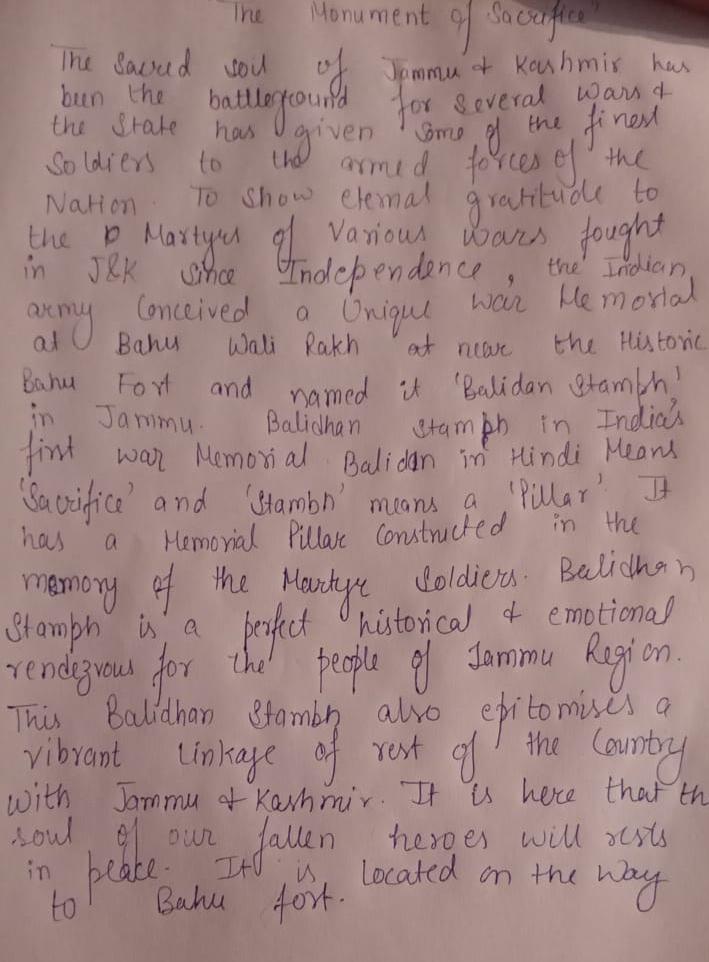 The Monument of Sacrifice"
The Sacred soil of Jammu & Kashmir has
been the battleground for several wars &
the State has given some of the finest
Soldiers to the armed forces of the
Nation. To show eternal gratitude to
the Martyrs of Various wars fought
in J&K Since Independence, the Indian
army Conceived a Unique war Memorial
at Bahu Wali Rakh at near the Historic
Bahu Fort and named it 'Balidan Stambh'
in Jammu. Balidhan Stambh in India's
first war Memorial. Balidan in Hindi Means
'Sacrifice' and 'Stambh' means a 'Pillar'. It
has a Memorial Pillar Constructed in the
memory of the Martyr Soldiers. Balidhan
Stamph is a perfect historical & emotional
rendezvous for the people of Jammu Region.
This Balidhan Stambh also epitomises a
vibrant linkage of rest of the Country
with Jammu & Kashmir. It is here that th
soul of our fallen heroes will rests
in peace. It is located on the way
to Bahu fort.